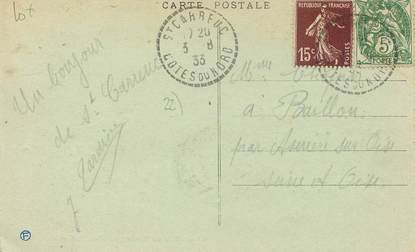 lot
CARTE POSTALE
ST CARREUC
17 20
3 - 8
33
COTES DU NORD
RÉPUBLIQUE FRANÇAISE
15c
POSTES
5
Un bonjour
de St Carreuc
22
Mme
à Baillon
par Asnière sur Oise
Seine et Oise